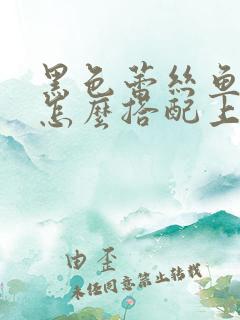 黑色蕾丝鱼
怎麼搭配上
由歪
未经同意禁止转载